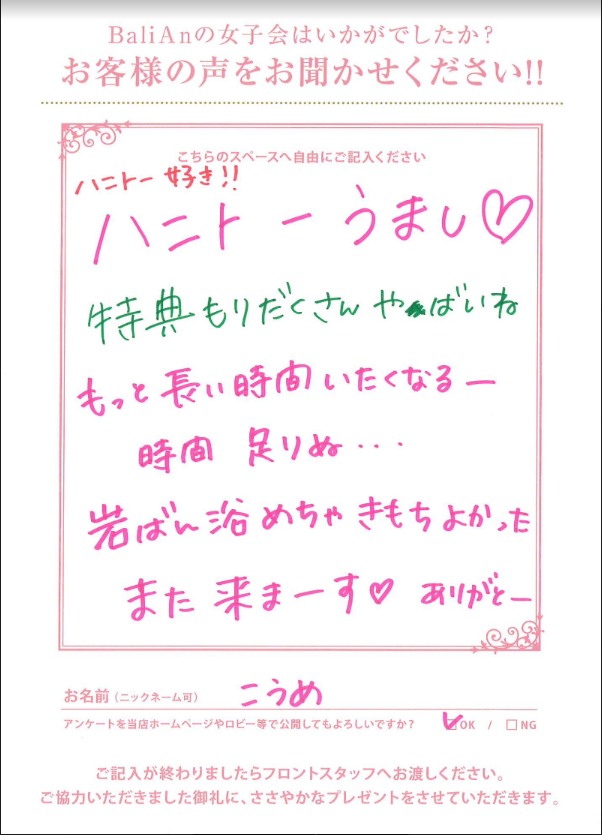 BaliAnの女子会はいかがでしたか?
お客様の声をお聞かせください!!
こちらのスペースへ自由にご記入ください
ハニトー 好き!!
ハニトー うまし♡
特典もりだくさん やばいね
もっと長い時間いたくなるー
時間 足りぬ・・・
岩ばん浴 めちゃ きもちよかった
また 来まーす♡ ありがとー
お名前(ニックネーム可) こうめ
アンケートを当店ホームページやロビー等で公開してもよろしいですか? ☑OK / □NG
ご記入が終わりましたらフロントスタッフへお渡しください。
ご協力いただきました御礼に、ささやかなプレゼントをさせていただきます。